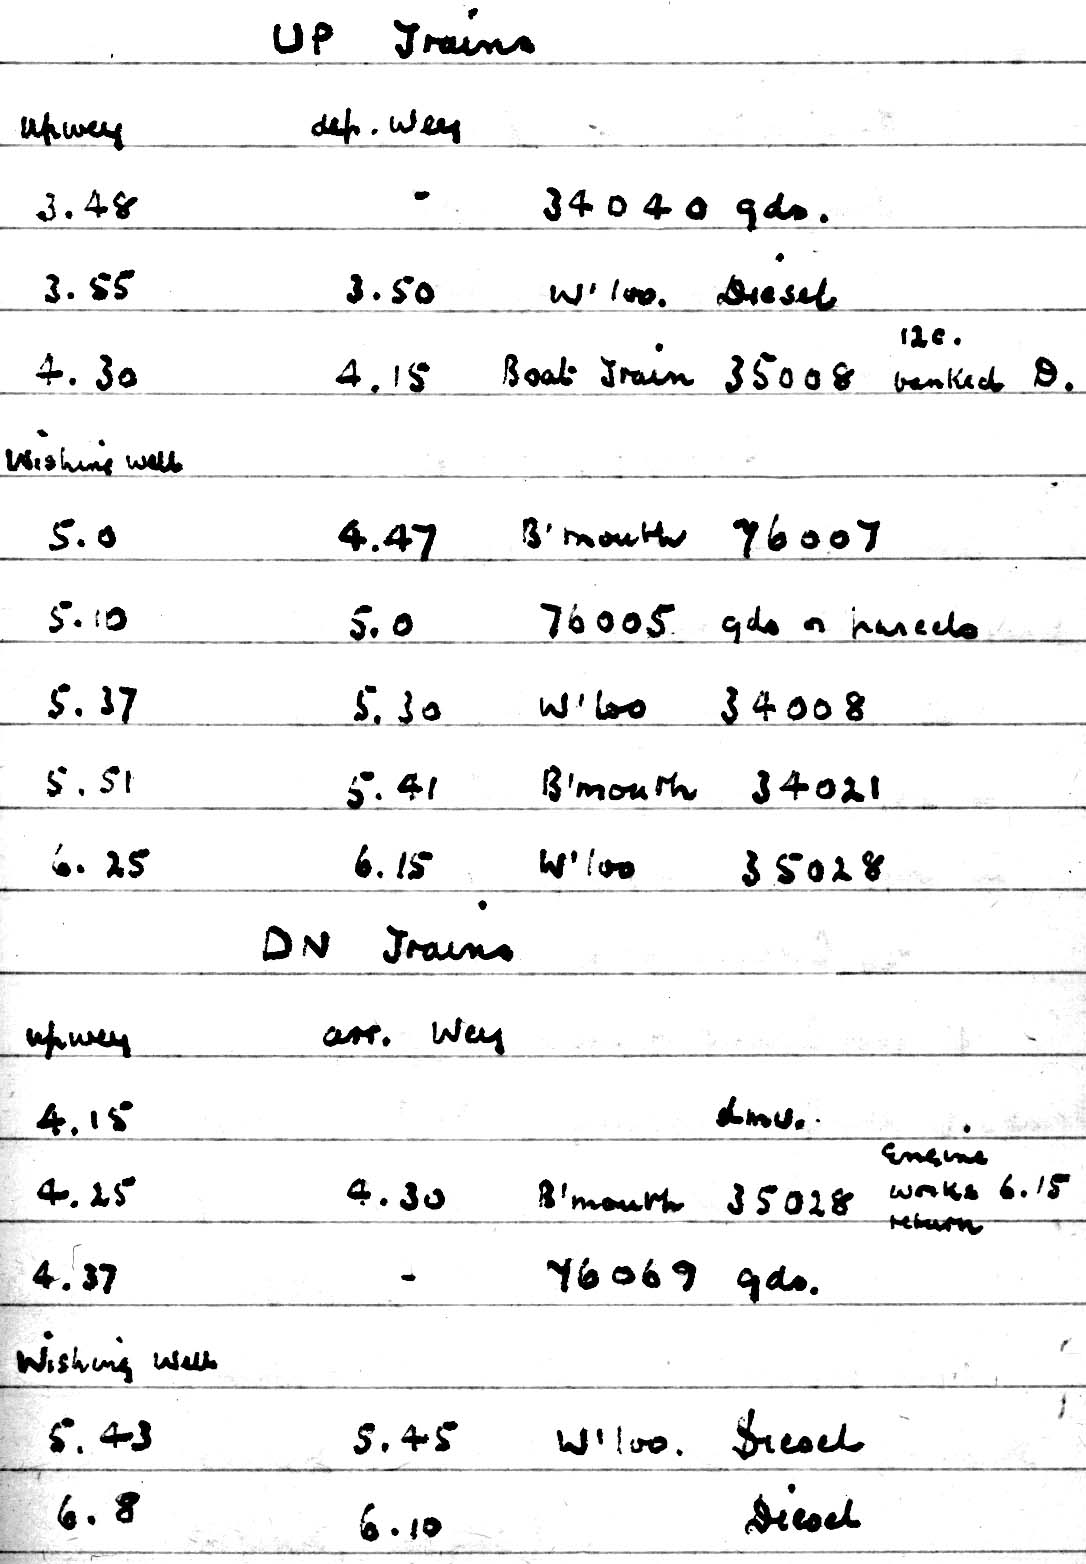 UP Trains
Upwey dep. Wey
3.48 - 34040 gds.
3.55 3.50 W'loo. Diesel
4.30 4.15 Boat Train 35008 12c. banked D.
Wishing Well
5.0 4.47 B'mouth 76007
5.10 5.0 76005 gds or parcels
5.37 5.30 W'loo 34008
5.51 5.41 B'mouth 34021
6.25 6.15 W'loo 35028
DN Trains
Upwey arr. Wey
4.15 dmu.
4.25 4.30 B'mouth 35028 Engine works 6.15 return
4.37 - 76069 gds.
Wishing Well
5.43 5.45 W'loo. Diesel
6.8 6.10 Diesel